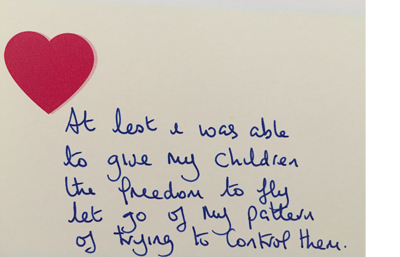 At last i was able
to give my children
the freedom to fly
let go of my pattern
of trying to control them.